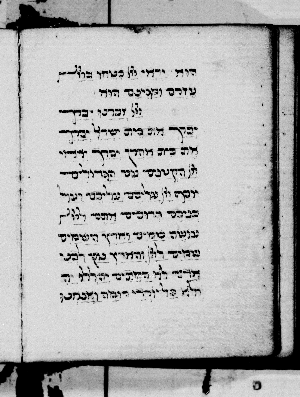 הוא יראי יי בטחו ביי
עזרם ומגינם הוא
יי זכרנו יברך
יברך את בית ישראל יברך
את בית אהרן יברך יראי
יי הקטנים עם הגדולים
יוסף יי עליכם עליכם ועל
בניכם ברוכים אתם ליי
עושה שמים וארץ השמים
שמים ליי והארץ נתן לבני
אדם לא המתים יהללו יה
ולא כל יורדי דומה ואנחנו